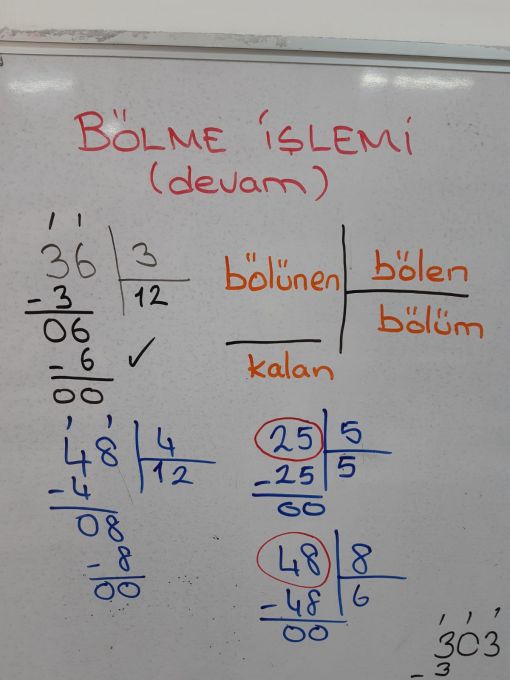 BÖLME İŞLEMİ
(devam)
36 3
-3 12
06
-6 ✓
00
bölünen bölen
bölüm
kalan
48 4
-4 12
08
-8
00
25 5
-25 5
00
48 8
-48 6
00
303
-3